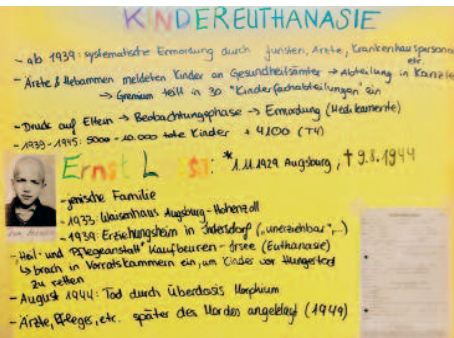 KINDEREUTHANASIE
- ab 1939: systematische Ermordung durch Juristen, Ärzte, Krankenhauspersonal
etc.
- Ärzte & Hebammen meldeten Kinder an Gesundheitsämter → Abteilung in Kanzlei
→ Gremium teilt in 30 "Kinderfachabteilungen" ein
- Druck auf Eltern → Beobachtungsphase → Ermordung (Medikamente)
- 1939-1945: 5000-10.000 tote Kinder + 4100 (T4)
Ernst L : *1.11.1929 Augsburg, † 9.8.1944
- jenische Familie
- 1933: Waisenhaus Augsburg-Hohenzoll
- 1939: Erziehungsheim in Indersdorf ("unerziehbar",...)
- "Heil- und Pflegeanstalt" Kaufbeuren-Irsee (Euthanasie)
↳ brach in Vorratskammern ein, um Kinder vor Hungertod
zu retten
- August 1944: Tod durch Überdosis Morphium
- Ärzte, Pfleger, etc. später des Mordes angeklagt (1949)